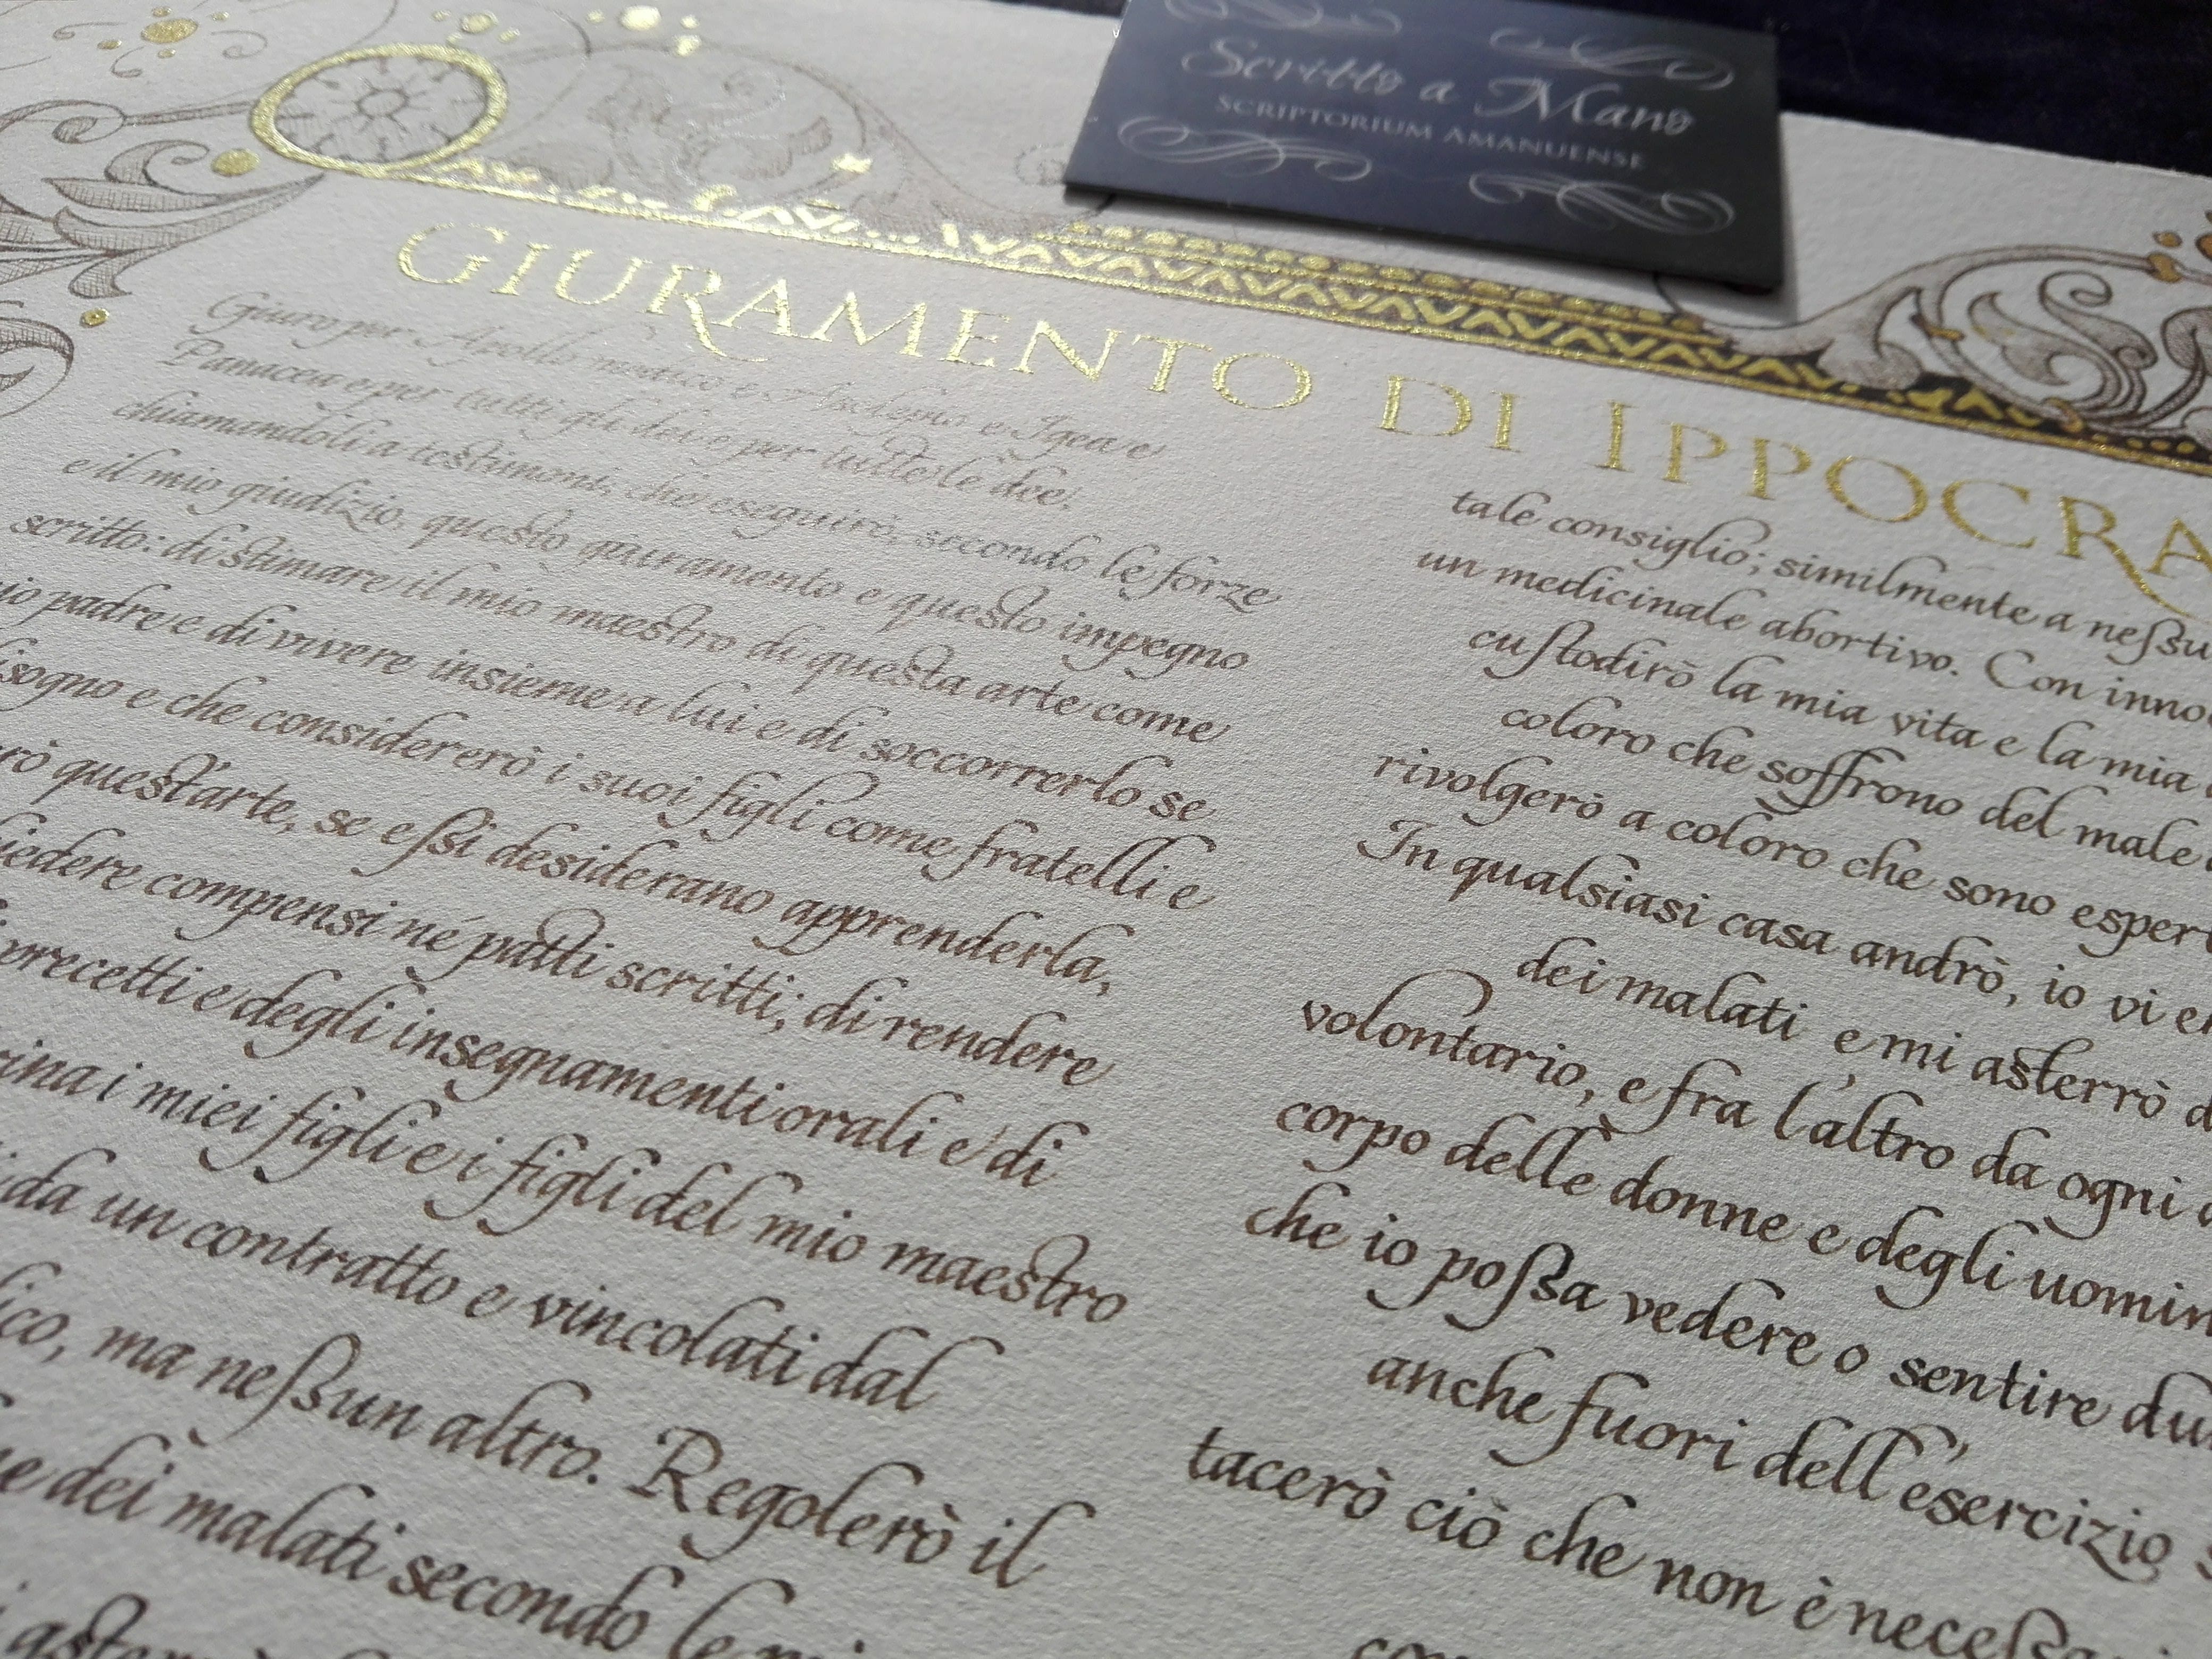 Scritto a Mano
SCRIPTORIUM AMANUENSE
GIURAMENTO DI IPPOCRA
Giuro per Apollo medico e Asclepio e Igea e
Panacea e per tutti gli dei e per tutte le dee,
chiamandoli a testimoni, che eseguirò, secondo le forze
e il mio giudizio, questo giuramento e questo impegno
scritto: di stimare il mio maestro di questa arte come
io padre e di vivere insieme a lui e di soccorrerlo se
isogno e che considererò i suoi figli come fratelli e
rò quest'arte, se essi desiderano apprenderla,
iedere compensi né patti scritti, di rendere
precetti e degli insegnamenti orali e di
rina i miei figli e i figli del mio maestro
da un contratto e vincolati dal
ico, ma nessun altro. Regolerò il
e dei malati secondo le mi
asterrò
tale consiglio; similmente a nessu
un medicinale abortivo. Con inno
custodirò la mia vita e la mia
coloro che soffrono del male
rivolgerò a coloro che sono espert
In qualsiasi casa andrò, io vi e
dei malati e mi asterrò d
volontario, e fra l'altro da ogni
corpo delle donne e degli uomin
che io possa vedere o sentire du
anche fuori dell'esercizio
tacerò ciò che non è necessari